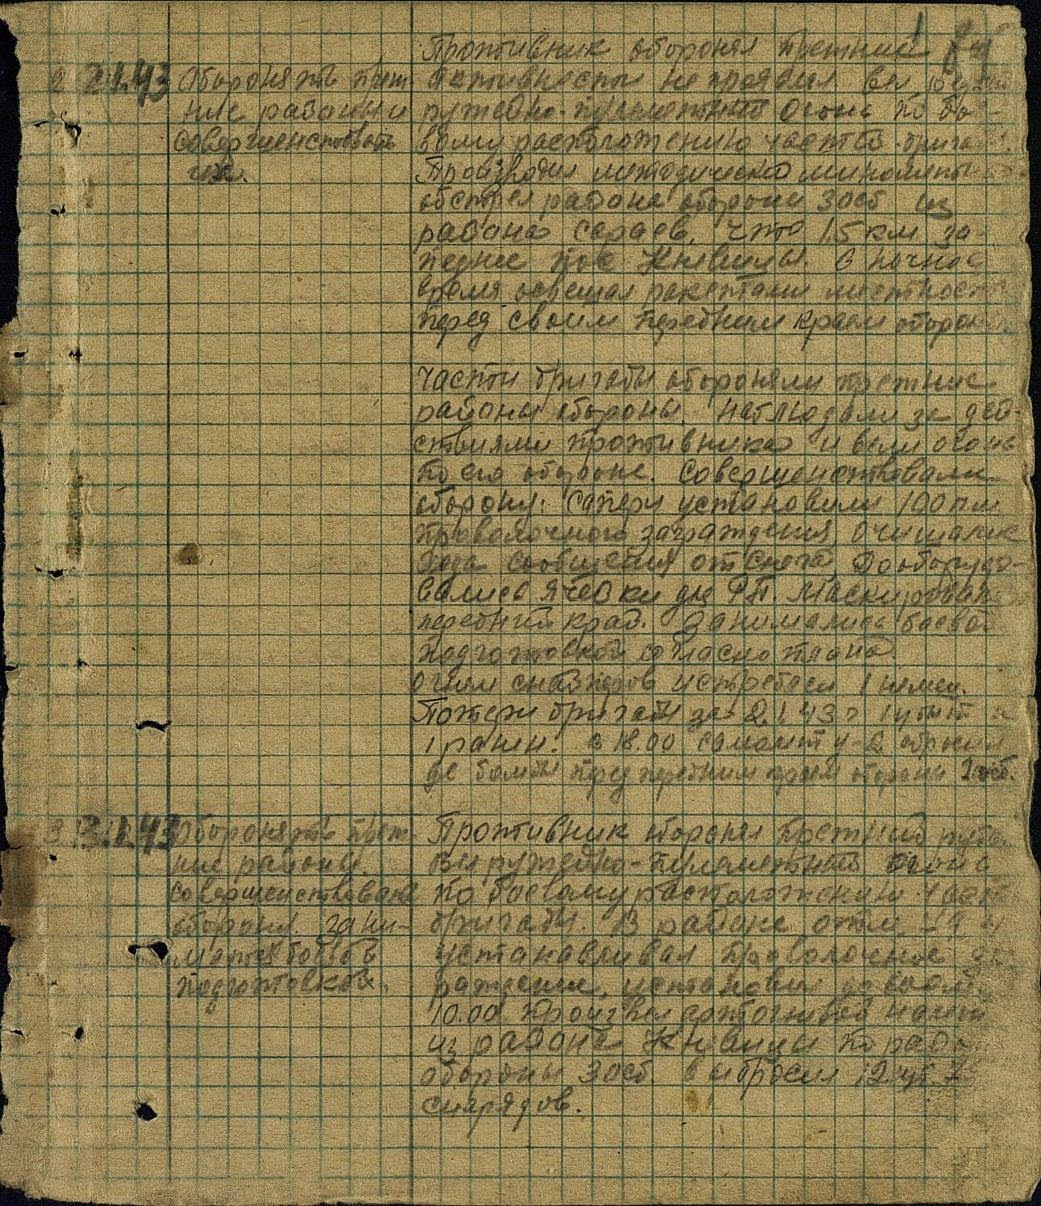 Противник оборонял прежний
2 2.1.43 Оборонять преж-
ние районы и
совершенствовать
их.
Активности не проявил. Вел редкий
ружейно-пулеметный огонь по бое-
вому расположению частей бригады.
Производил методический минометный
обстрел района обороны 3 осб из
района сараев, что 1.5 км за-
паднее пос Княвицы. В ночное
время освещал ракетами местность
перед своим передним краем обороны.
Части бригады обороняли прежние
районы обороны. Наблюдали за дей-
ствиями противника и вели огонь
по его обороне. Совершенствовали
оборону: Саперы установили 100 пм
проволочного заграждения. Очищались
хода сообщения от снега. Дооборудо-
вались ячейки для РП. Маскировали
передний край. Занимались боевой
подготовкой согласно плана.
Огнем снайперов истреблен 1 немец.
Потери бригады за 2.1.43 г 1 убит и
1 ранен. В 18.00 самолет У-2 сбросил
две бомбы перед передним краем обороны 2 осб.
3 3.1.43 Оборонять преж-
ние районы.
Совершенствовать
оборону. Зани-
маться боевой
подготовкой.
Противник оборонял прежний рубеж.
Вел ружейно-пулеметный огонь
по боевому расположению частей
бригады. В районе отм
устанавливал проволочное заг-
раждение, установил
10.00 Произвел огневой налет
из района Княвицы по району
обороны 3 осб. выбросил 12
снарядов.